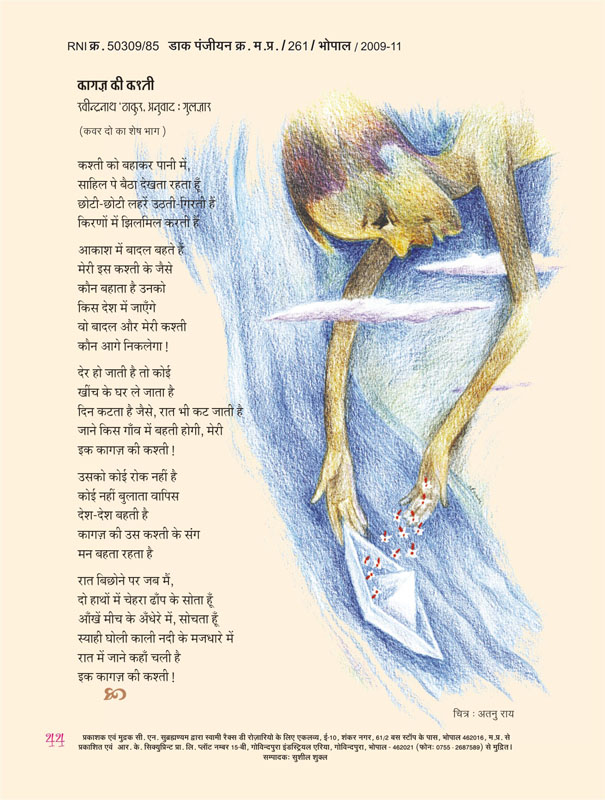 RNI क्र. 50309/85 डाक पंजीयन क्र. म.प्र./261/भोपाल/2009-11
कागज़ की कश्ती
रवीन्द्रनाथ ठाकुर, अनुवाद : गुलज़ार
(कवर दो का शेष भाग)
कश्ती को बहाकर पानी में,
साहिल पे बैठा देखता रहता हूँ
छोटी-छोटी लहरें उठती-गिरती हैं
किरणों में झिलमिल करती हैं
आकाश में बादल बहते हैं
मेरी इस कश्ती के जैसे
कौन बहाता है उनको
किस देश में जाएँगे
वो बादल और मेरी कश्ती
कौन आगे निकलेगा !
देर हो जाती है तो कोई
खींच के घर ले जाता है
दिन कटता है जैसे, रात भी कट जाती है
जाने किस गाँव में बहती होगी, मेरी
इक कागज़ की कश्ती !
उसको कोई रोक नहीं है
कोई नहीं बुलाता वापिस
देश-देश बहती है
कागज़ की उस कश्ती के संग
मन बहता रहता है
रात बिछोने पर जब मैं,
दो हाथों में चेहरा ढाँप के सोता हूँ
आँखें मीच के अँधेरे में, सोचता हूँ
स्याही घोली काली नदी के मजधारे में
रात में जाने कहाँ चली है
इक कागज़ की कश्ती !
चित्र : अतनु राय
44
प्रकाशक एवं मुद्रक सी. एन. सुब्रह्मण्यम द्वारा स्वामी रैक्स डी रोज़ारियो के लिए एकलव्य, ई-10, शंकर नगर, 61/2 बस स्टॉप के पास, भोपाल 462016, म.प्र. से
प्रकाशित एवं आर. के. सिक्युप्रिन्ट प्रा. लि. प्लॉट नम्बर 15-बी, गोविन्दपुरा इंडस्ट्रियल एरिया, गोविन्दपुरा, भोपाल - 462021 (फोन: 0755 - 2687589) से मुद्रित।
सम्पादक: सुशील शुक्ल